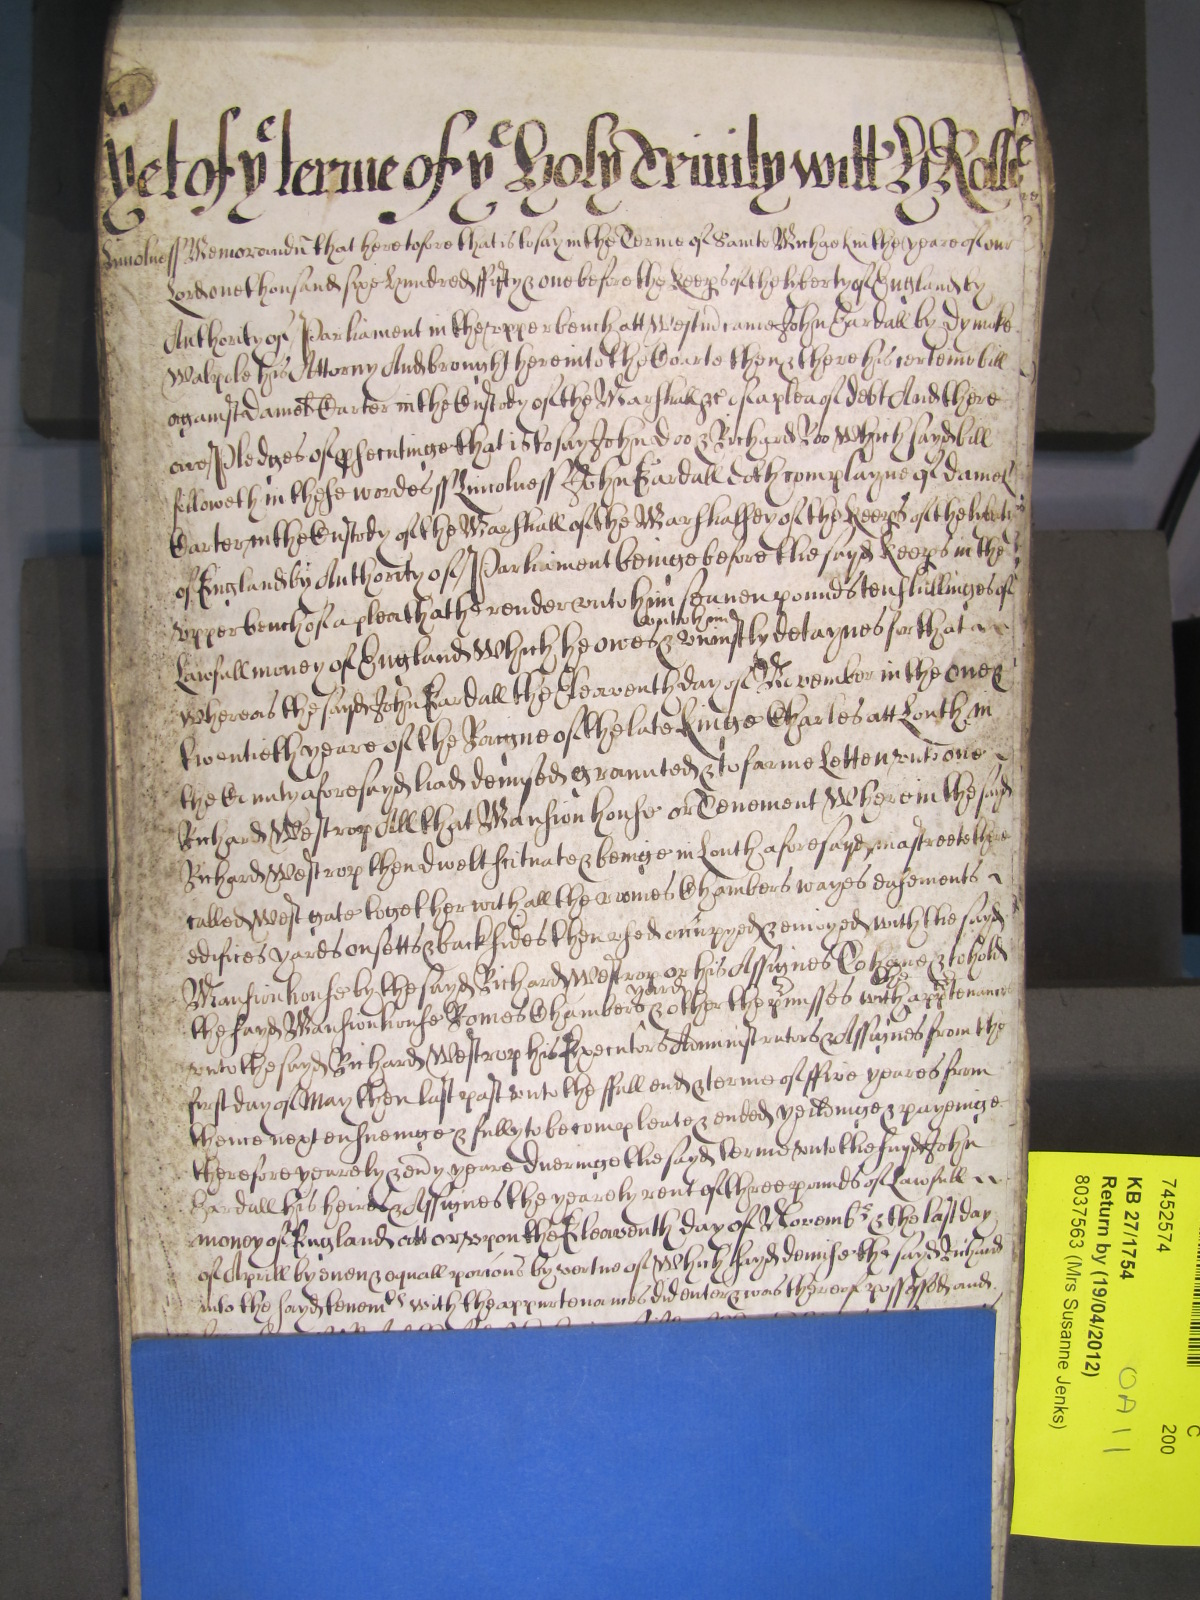 Yet of ye terme of ye Holy Trinity witt H Rolle
Lincolne ss Memorandu that heretofore that is to say in the Terme of Sainte Michael in the yeare of our
Lord one thousand sixe hundred fifty & one before the keeps of the liberty of England by
Authority of Parliament in the upper bench att Westm came John Eardall by Dymoke
Walpole his Attorny And brought here into the Courte then & there his certeine bill
against Daniel Carter in the Custody of the Marshall &c of a plea of debt And there
are Pledges of psecutinge that is to say John Doo & Richard Roo Which sayd bill
followeth in these wordes ss Lincolne ss John Eardall doth complayne of Daniel
Carter in the Custody of the Marshall of the Marshalsey of the keeps of the liberty
of England by Authority of Parliament beinge before the sayd keeps in the
upper bench of a plea that he render unto him seaven pounds ten shillinges of
Lawfull money of England Which he owes unto him & uniustly detaynes for that
Whereas the sayd John Eardall the Eleaventh day of November in the one &
twentieth yeare of the Raigne of the late Kinge Charles att Louth in
the County aforesayd had demysed graunted & to farme Letten unto one
Richard Westrop All that Mansion house or Tenement Wherein the sayd
Richard Westrop then dwelt scituate & beinge in Louth aforesayd in a streete there
called West gate together with all the romes Chambers wayes easements
edifices yards onsetts & backsides then used occupyed & enioyed with the sayd
Mansion house by the sayd Richard Westrop or his Assignes To have & to hold
the sayd Mansion house Romes Chambers yards & other the pmisses with the apptenances
unto the sayd Richard Westrop his Executors Administrators & Assignes from the
first day of May then last past unto the full end & terme of ffive yeares from
thence next ensueinge & fully to be compleate & ended yeildinge & payeinge
therefore yearely & evy yeare dueringe the sayd terme unto the sayd John
Eardall his heires & Assignes the yearely rent of three pounds of Lawfull
money of England att or upon the Eleaventh day of Novembr & the last day
of Aprill by even & equall porcions by vertue of Which sayd demise the sayd Richard
into the sayd tenemts with the appurtenances did enter & was thereof possessed and
7452574
C
200
KB 27/1754
Return by (19/04/2012)
OA 11
8037563 (Mrs Susanne Jenks)